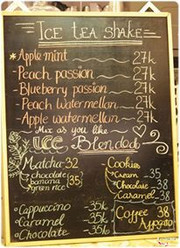 ICE TEA SHAKE
* Apple mint 27k
- Peach passion 27k
- Blueberry passion 27k
- Peach watermellon 27k
- Apple watermellon 27k
Mix as you like
ICE Blended
Matcha 32
chocolate
banana
green rice
35
Cookies
Cream 35
Chocolate 38
Caramel 38
- Cappuccino 35k
- Caramel 35k
- Chocolate 35k
Coffee 38